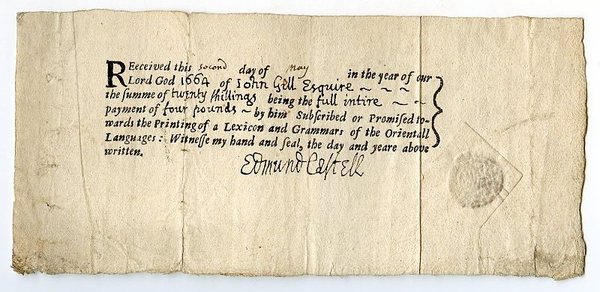 REceived this second day of May in the year of our
Lord God 1664 of John Gill Esquire ~ ~ ~
the summe of twenty shillings being the full intire ~ ~
payment of four pounds ~ by him Subscribed or Promised to-
wards the Printing of a Lexicon and Grammars of the Orientall
Languages: Witnesse my hand and seal, the day and yeare above
written.
Edmund Castell